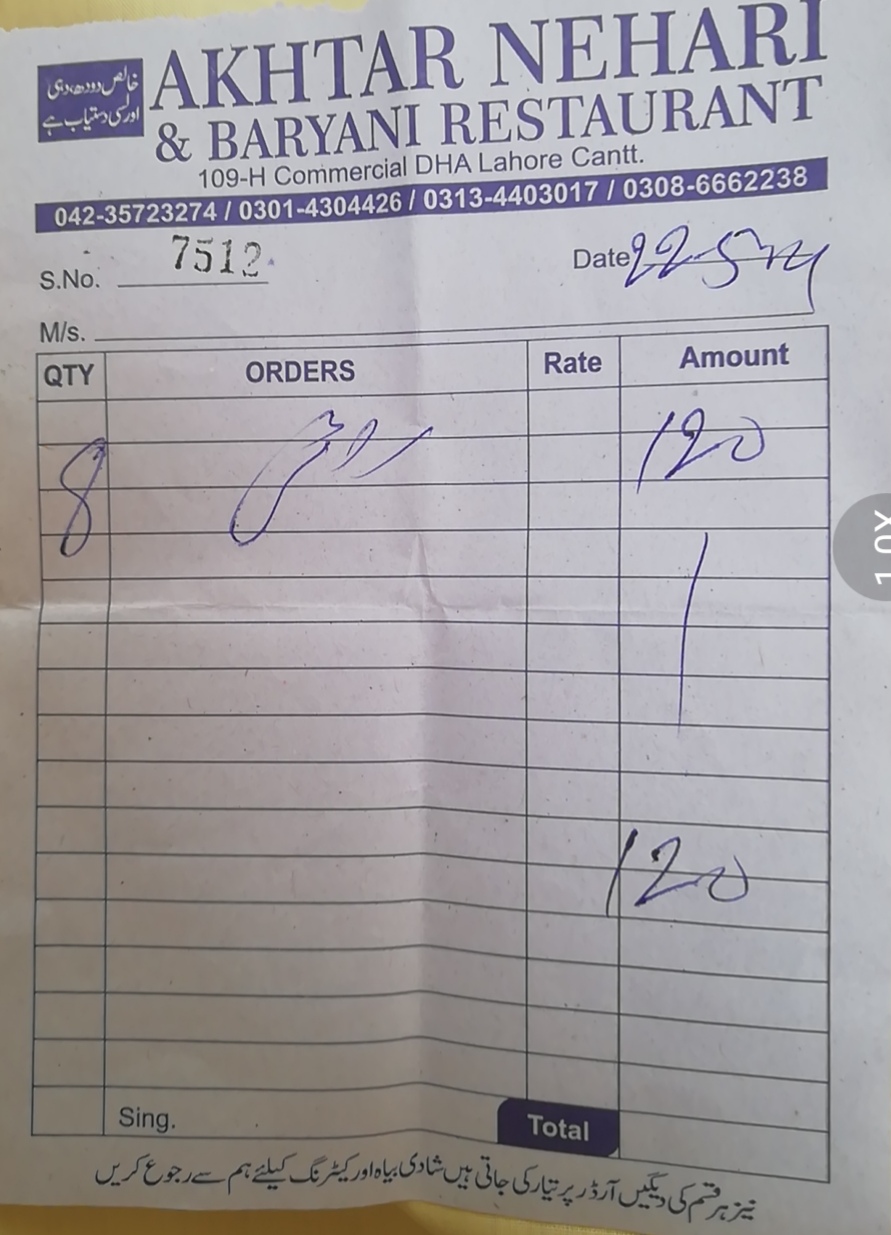 خالص دودھ،دہی
اورلسی دستیاب ہے
AKHTAR NEHARI
& BARYANI RESTAURANT
109-H Commercial DHA Lahore Cantt.
042-35723274 / 0301-4304426 / 0313-4403017 / 0308-6662238
S.No. 7512 Date 22-5-24
M/s.
QTY ORDERS Rate Amount
8 روٹی 120
120
Sing. Total
نیز ہر قسم کی دیگیں آرڈر پر تیار کی جاتی ہیں شادی بیاہ اور کیٹرنگ کیلئے ہم سے رجوع کریں
1.0X